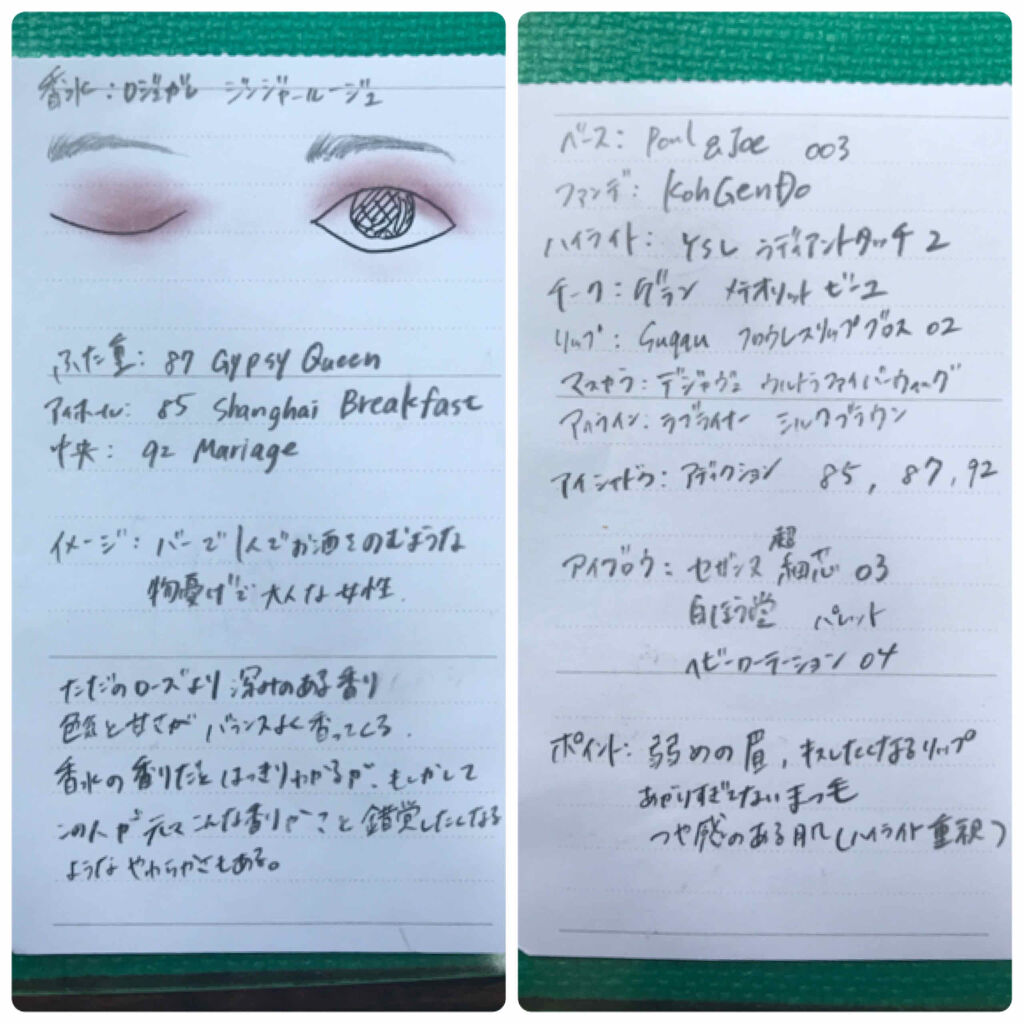 香水：ロジェガレ ジンジャールージュ
ふた重：87 Gypsy Queen
アイホール：85 Shanghai Breakfast
中央：92 Mariage
イメージ：バーで1人でお酒をのむような
物憂げで大人な女性.
ただのローズより深みのある香り
色気と甘さがバランスよく香ってくる.
香水の香りだとはっきりわかるが、もしかして
この人が元々こんな香りかもと錯覚したくなる
ようなやわらかさもある。
ベース：Paul & Joe 003
ファンデ：KohGenDo
ハイライト：YSL ラディアントタッチ 2
チーク：ゲラン メテオリット ビーユ
リップ：Suqqu フロウレスリップグロス 02
マスカラ：デジャヴュ ウルトラファイバーウィッグ
アイライン：ラブライナー シルクブラウン
アイシャドウ：アディクション 85, 87, 92
アイブロウ：セザンヌ 超細芯 03
白ほう堂 パレット
ヘビーローテーション 04
ポイント：弱めの眉, キスしたくなるリップ
あがりすぎてないまつ毛
つや感のある肌(ハイライト重視)